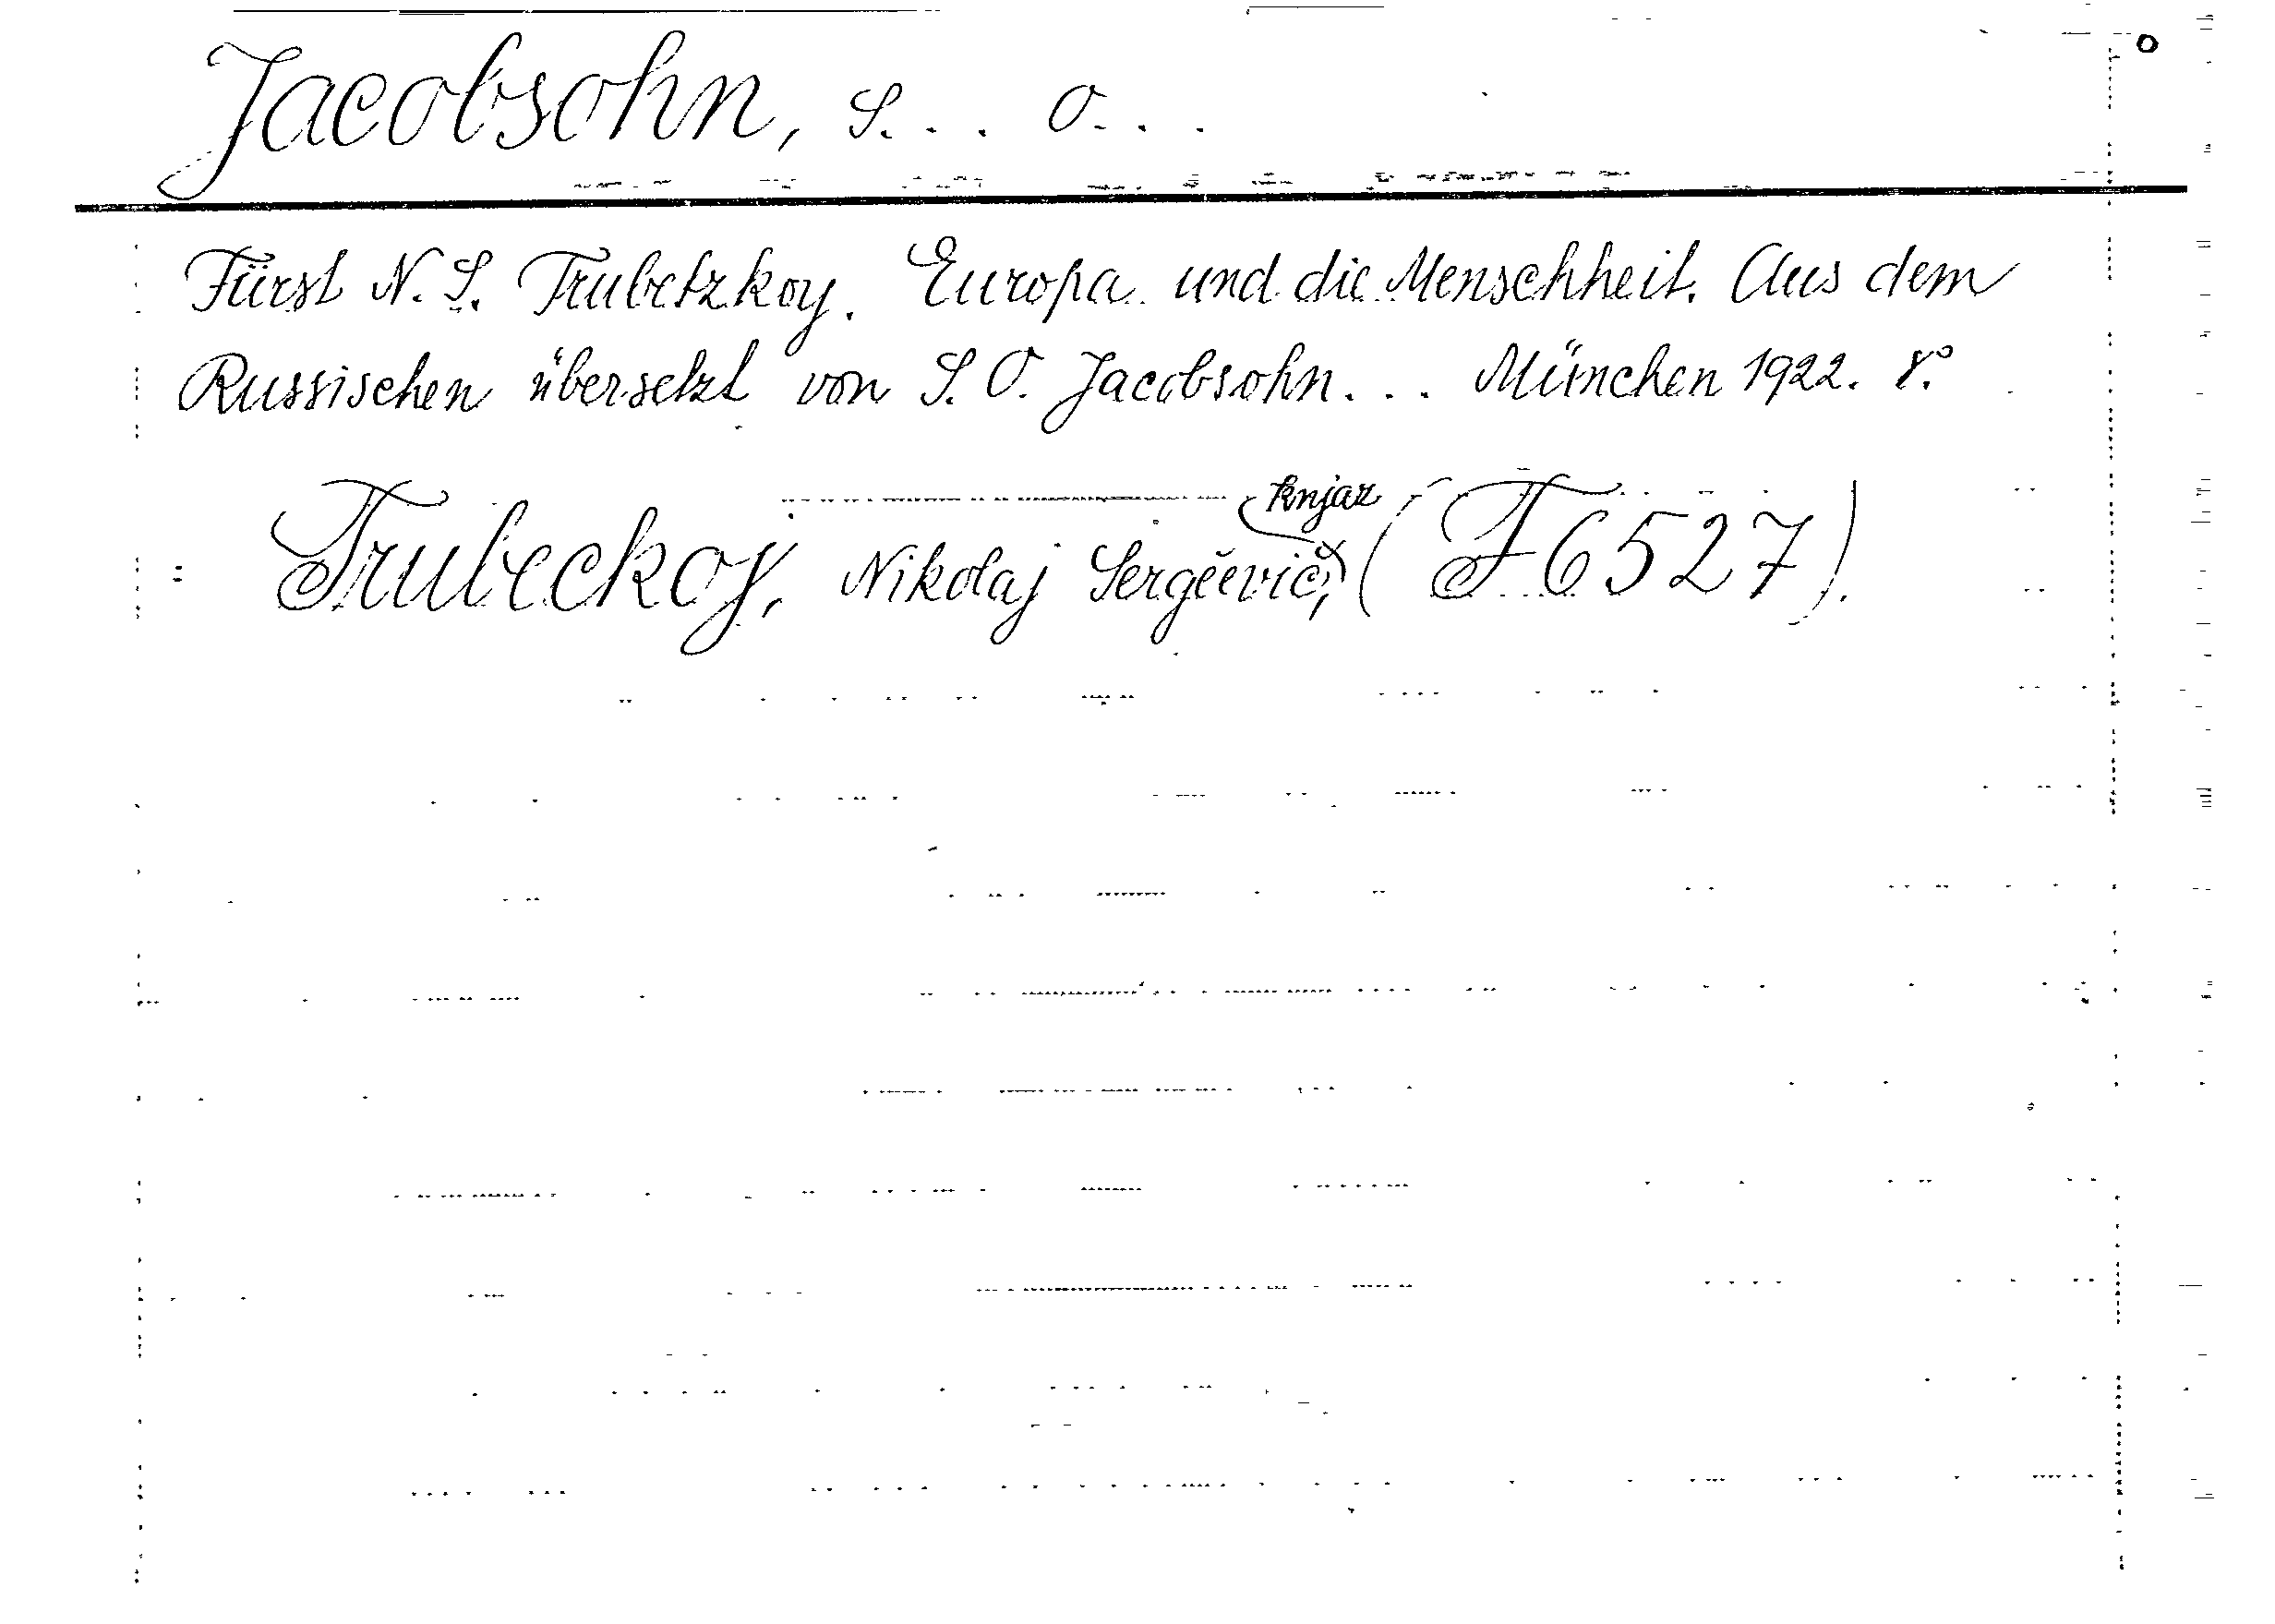 Jacobsohn, S... O...
Fürst N. S. Trubetzkoy. Europa und die Menschheit. Aus dem
Russischen übersetzt von S. O. Jacobsohn... München 1922. 8.°
= Trubeckoj, Nikolaj Sergěevič, knjaz (F 6527).